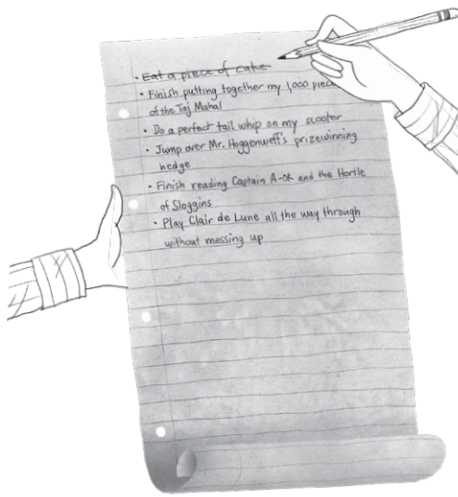 • Eat a piece of cake
• Finish putting together my 1,000 piece
of the Taj Mahal
• Do a perfect tail whip on my scooter
• Jump over Mr. Hoggenweff's prizewinning
hedge
• Finish reading Captain A-OK and the Hortle
of Sloggins
• Play Clair de Lune all the way through
without messing up